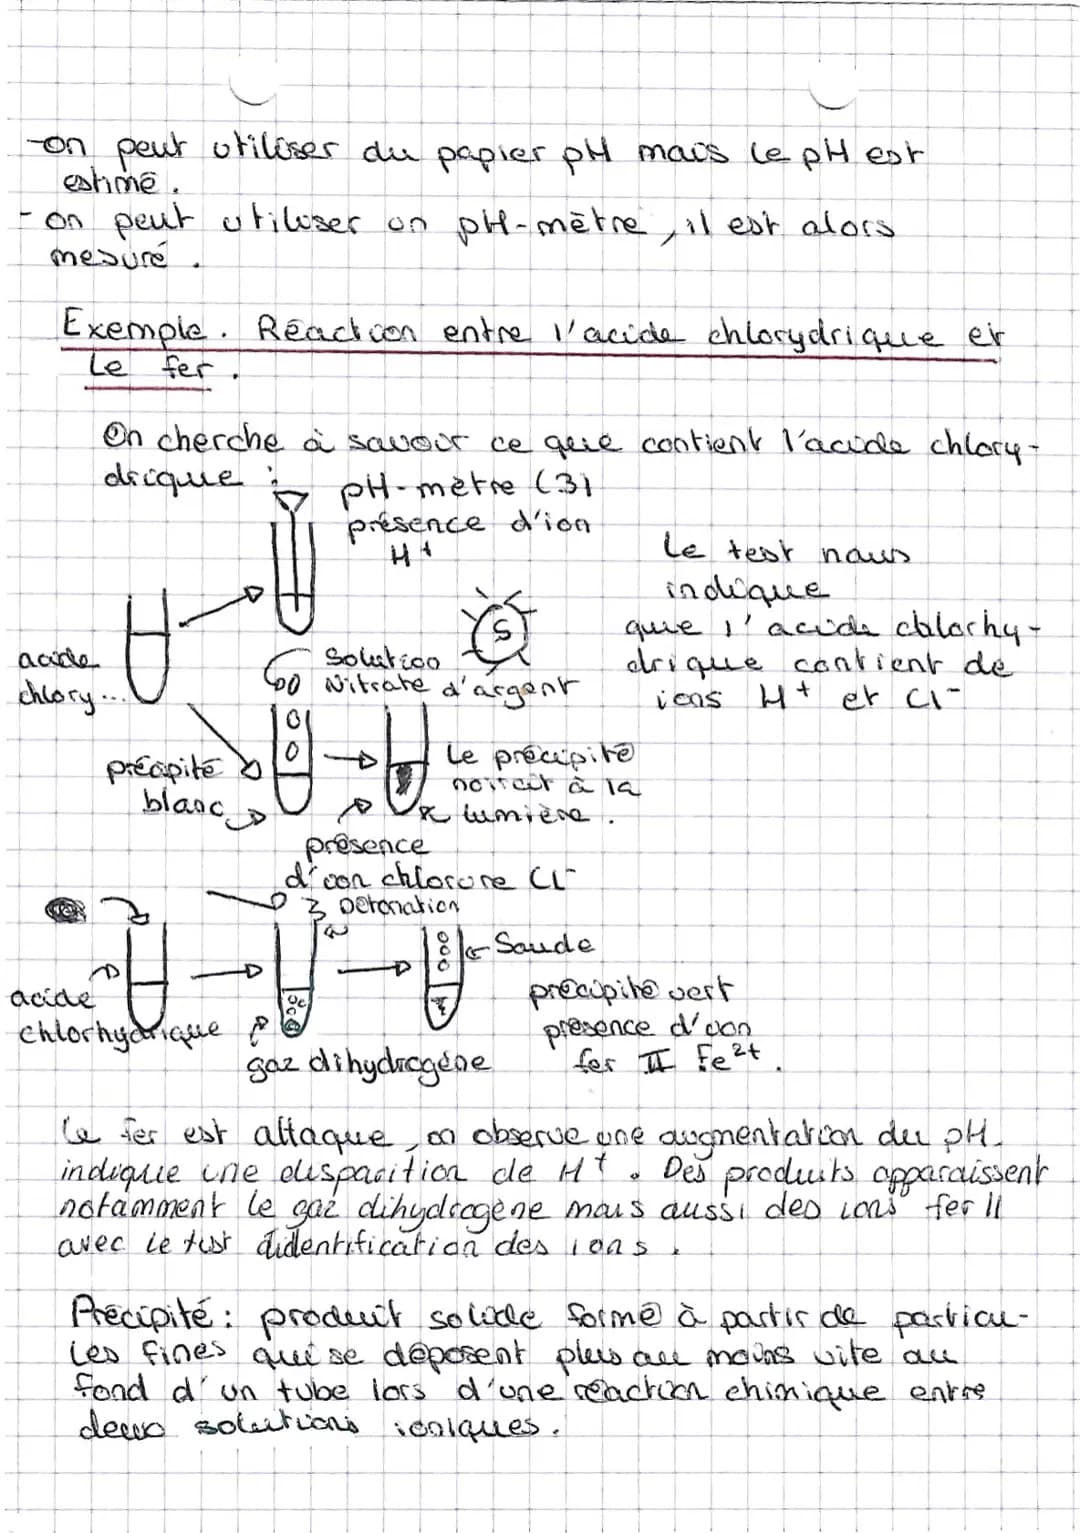 -on peut utiliser du papier pH mais le pH est
estimé.
- on peut utiliser un pH-mètre, il est alors
mesuré.
Exemple. Réaction entre l'acide chlorydrique et
Le fer.
On cherche à savoir ce que contient l'acide chlory-
drique :
pH-mètre (3)
présence d'ion
H+
Le test nous
indique
que l'acide chlorhy-
drique contient de
ions H+ et Cl-
acide
chlory...
S
Solution
Nitrate d'argent
précipité
blanc
Le précipité
noircit à la
lumière.
présence
d'ion chlorure Cl-
Détonation
Soude
acide
chlorhydrique
gaz dihydrogène
précipité vert
présence d'ion
fer II Fe2+.
Le fer est attaque, on observe une augmentation du pH.
indique une disparition de H+. Des produits apparaissent
notamment le gaz dihydrogène mais aussi des ions fer II
avec le test d'identification des ions.
Précipité : produit solide formé à partir de particu-
les fines qui se déposent plus au moins vite au
fond d'un tube lors d'une réaction chimique entre
deux solutions ioniques.